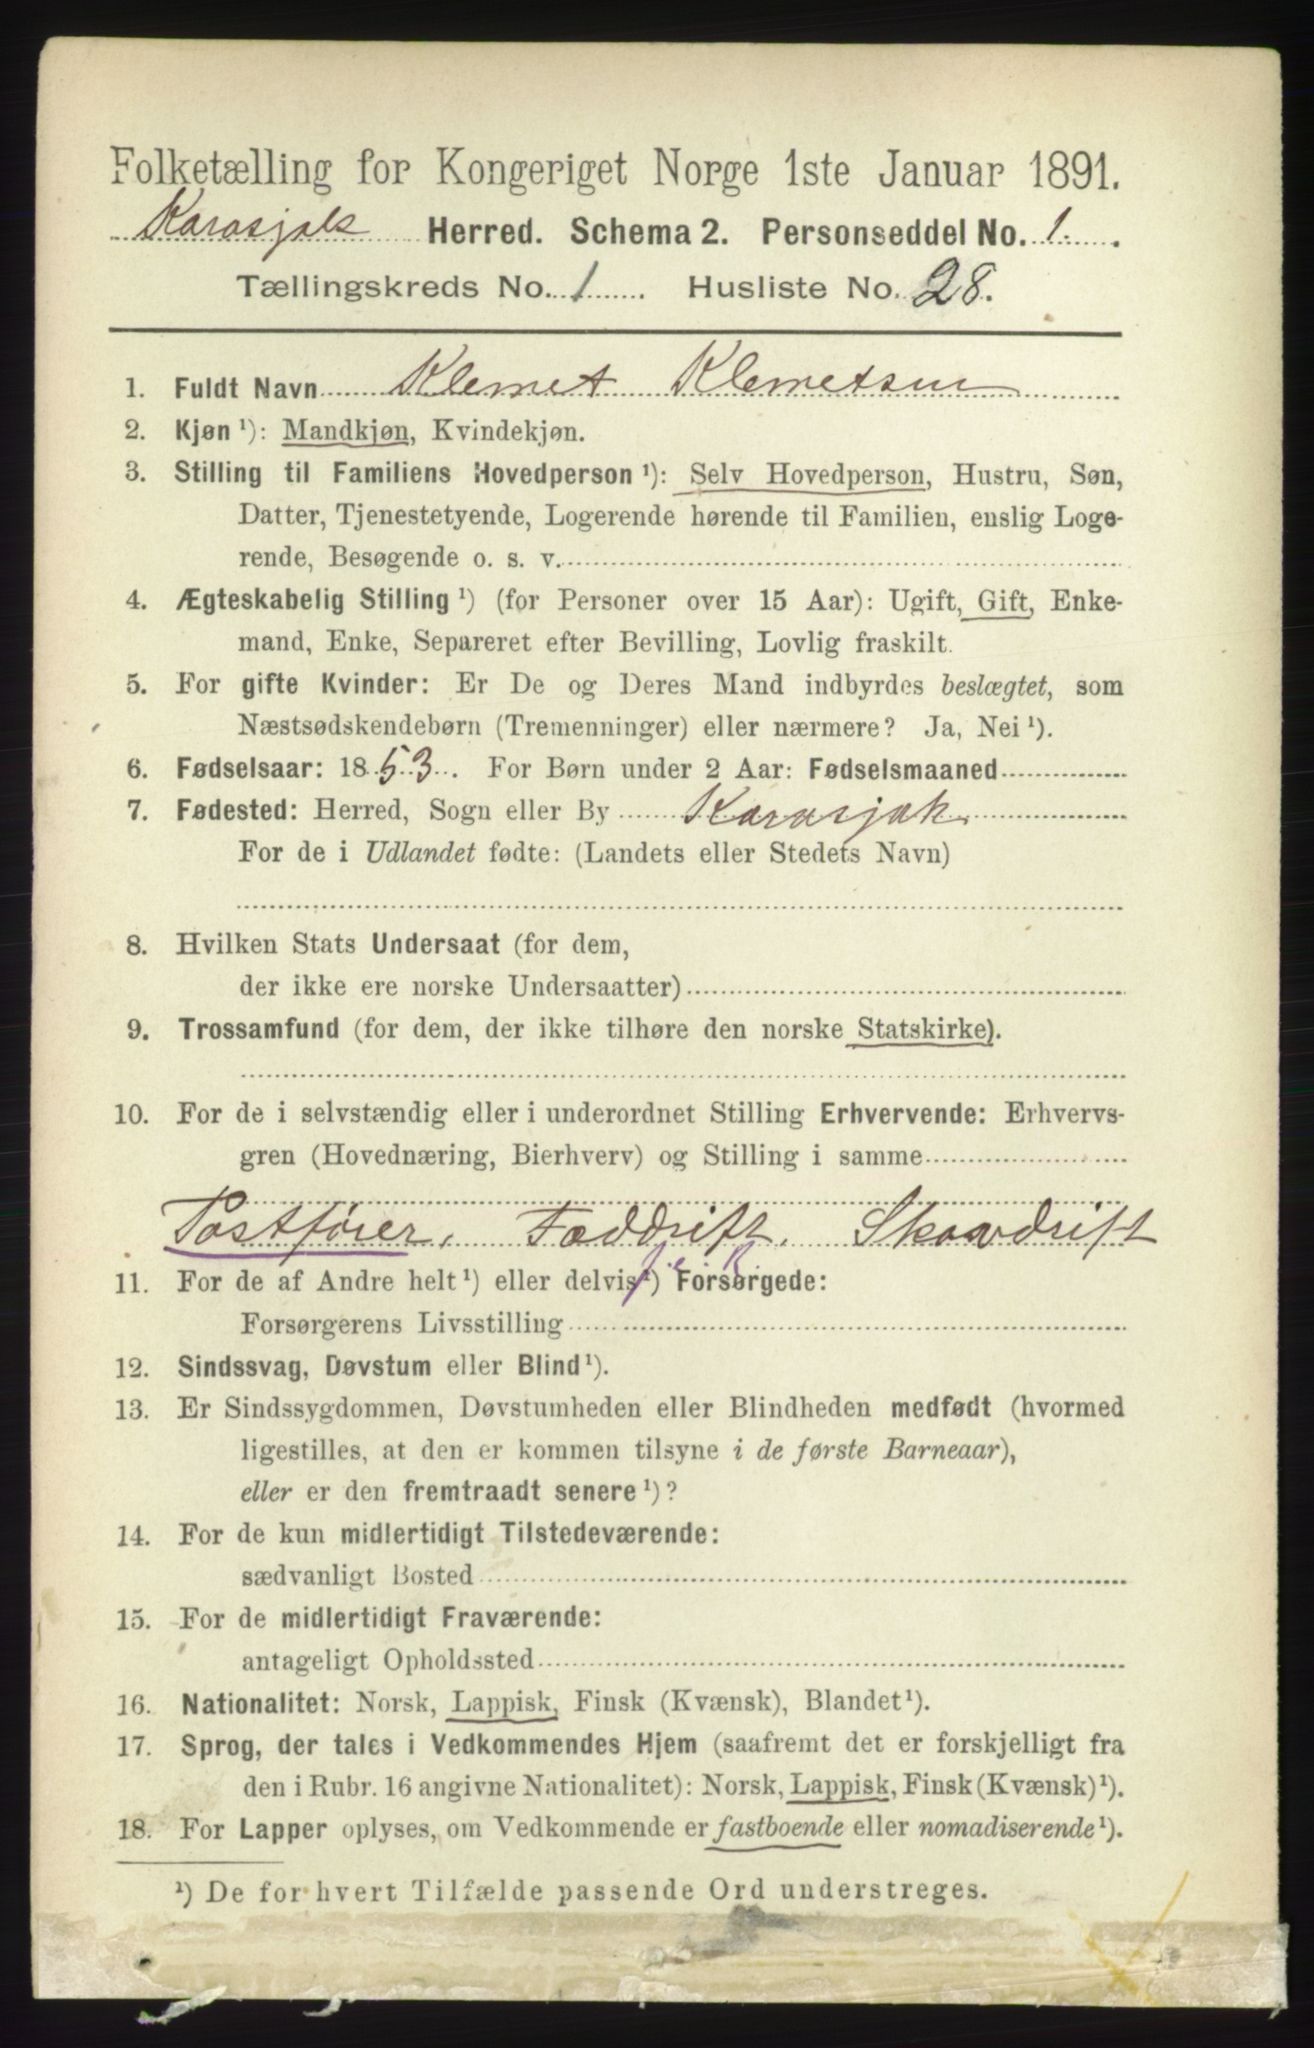 Folketælling for Kongeriget Norge 1ste Januar 1891.
Karasjok Herred. Schema 2. Personseddel No. 1.
Tællingskreds No. 1 Husliste No. 28.
1. Fuldt Navn Klemet Klemetsen
2. Kjøn ¹): Mandkjøn, Kvindekjøn.
3. Stilling til Familiens Hovedperson ¹): Selv Hovedperson, Hustru, Søn,
Datter, Tjenestetyende, Logerende hørende til Familien, enslig Loge-
rende, Besøgende o. s. v.
4. Ægteskabelig Stilling ¹) (for Personer over 15 Aar): Ugift, Gift, Enke-
mand, Enke, Separeret efter Bevilling, Lovlig fraskilt.
5. For gifte Kvinder: Er De og Deres Mand indbyrdes beslægtet, som
Næstsødskendebørn (Tremenninger) eller nærmere? Ja, Nei ¹).
6. Fødselsaar: 1853. For Børn under 2 Aar: Fødselsmaaned
7. Fødested: Herred, Sogn eller By Karasjok
For de i Udlandet fødte: (Landets eller Stedets Navn)
8. Hvilken Stats Undersaat (for dem,
der ikke ere norske Undersaatter)
9. Trossamfund (for dem, der ikke tilhøre den norske Statskirke).
10. For de i selvstændig eller i underordnet Stilling Erhvervende: Erhvervs-
gren (Hovednæring, Bierhverv) og Stilling i samme
Postfører, Fædrift, Skovdrift
11. For de af Andre helt ¹) eller delvis ¹) Forsørgede:
Forsørgerens Livsstilling
12. Sindssvag, Døvstum eller Blind ¹).
13. Er Sindssygdommen, Døvstumheden eller Blindheden medfødt (hvormed
ligestilles, at den er kommen tilsyne i de første Barneaar),
eller er den fremtraadt senere ¹)?
14. For de kun midlertidigt Tilstedeværende:
sædvanligt Bosted
15. For de midlertidigt Fraværende:
antageligt Opholdssted
16. Nationalitet: Norsk, Lappisk, Finsk (Kvænsk), Blandet ¹).
17. Sprog, der tales i Vedkommendes Hjem (saafremt det er forskjelligt fra
den i Rubr. 16 angivne Nationalitet): Norsk, Lappisk, Finsk (Kvænsk) ¹).
18. For Lapper oplyses, om Vedkommende er fastboende eller nomadiserende ¹).
¹) De for hvert Tilfælde passende Ord understreges.